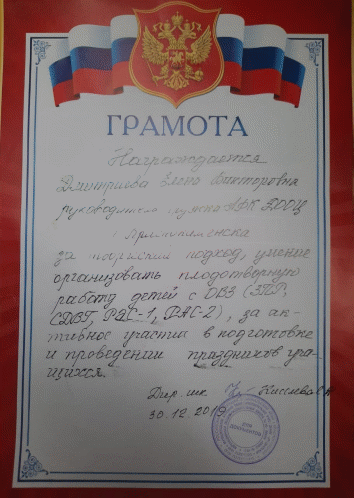 ГРАМОТА
Награждается
Дмитриева Елена Викторовна
руководитель кружка
за творческий подход, умение
организовать плодотворную
работу детей с ОВЗ (ЗПР,
СДВГ, РАС-1, РАС-2), за ак-
тивное участие в подготовке
и проведении праздников уча-
щихся.
Дир. шк.
30.12.2019
ДЛЯ
ДОКУМЕНТОВ